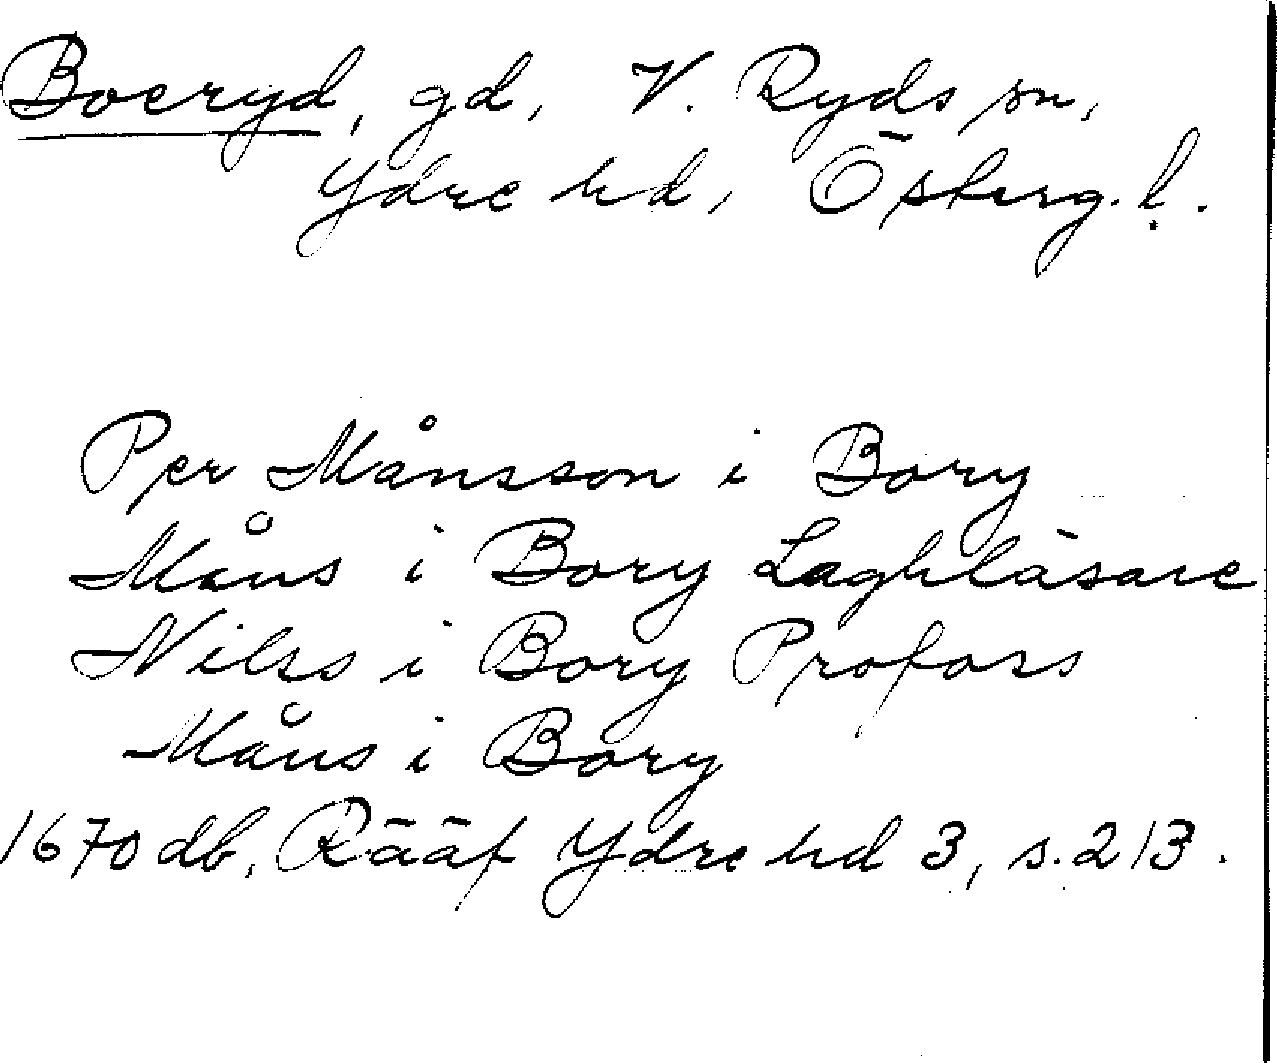 Boeryd, gd, V. Ryds sn,
Ydre hd, Österg. l.
Per Månsson i Bory
Måns i Bory Laghläsare
Nilss i Bory Profoss
Måns i Bory
1670 db, Rääf Ydre hd 3, s. 213.